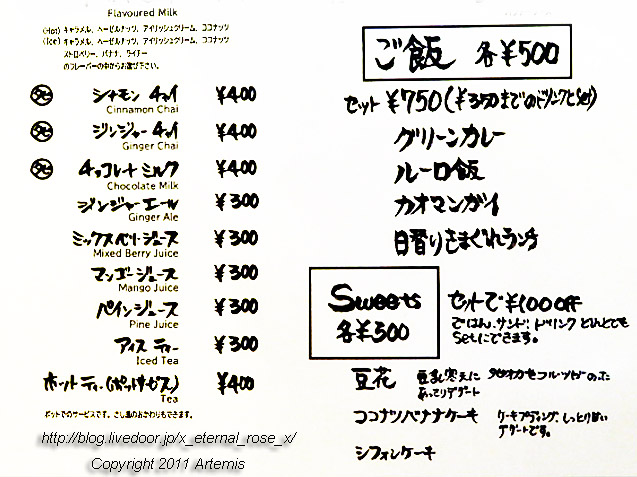 Flavoured Milk
(Hot) キャラメル、ヘーゼルナッツ、アイリッシュクリーム、ココナッツ
(Ice) キャラメル、ヘーゼルナッツ、アイリッシュクリーム、ココナッツ
ストロベリー、バナナ、ライチー
のフレーバーの中からお選び下さい。
シナモン チャイ ¥400
Cinnamon Chai
ジンジャー チャイ ¥400
Ginger Chai
チョコレートミルク ¥400
Chocolate Milk
ジンジャーエール ¥300
Ginger Ale
ミックスベリージュース ¥300
Mixed Berry Juice
マンゴージュース ¥300
Mango Juice
パインジュース ¥300
Pine Juice
アイスティー ¥300
Iced Tea
ホットティー(ポットサービス) ¥400
Tea
ポットでのサービスです。さし湯のおかわりもできます。
ご飯 各¥500
セット ¥750(¥350までのドリンクとSet)
グリーンカレー
ルーロ飯
カオマンガイ
日替りきまぐれランチ
Sweets
各¥300
セットで¥100off
ごはん、サンド、ドリンク どれとでも
Setにできます。
豆花 豆乳寒天に タピオカやフルーツが
あっさりデザート
ココナツバナナケーキ ケーキプディング、しっとり甘い
デザートです。
シフォンケーキ
http://blog.livedoor.jp/x_eternal_rose_x/
Copyright 2011 Artemis